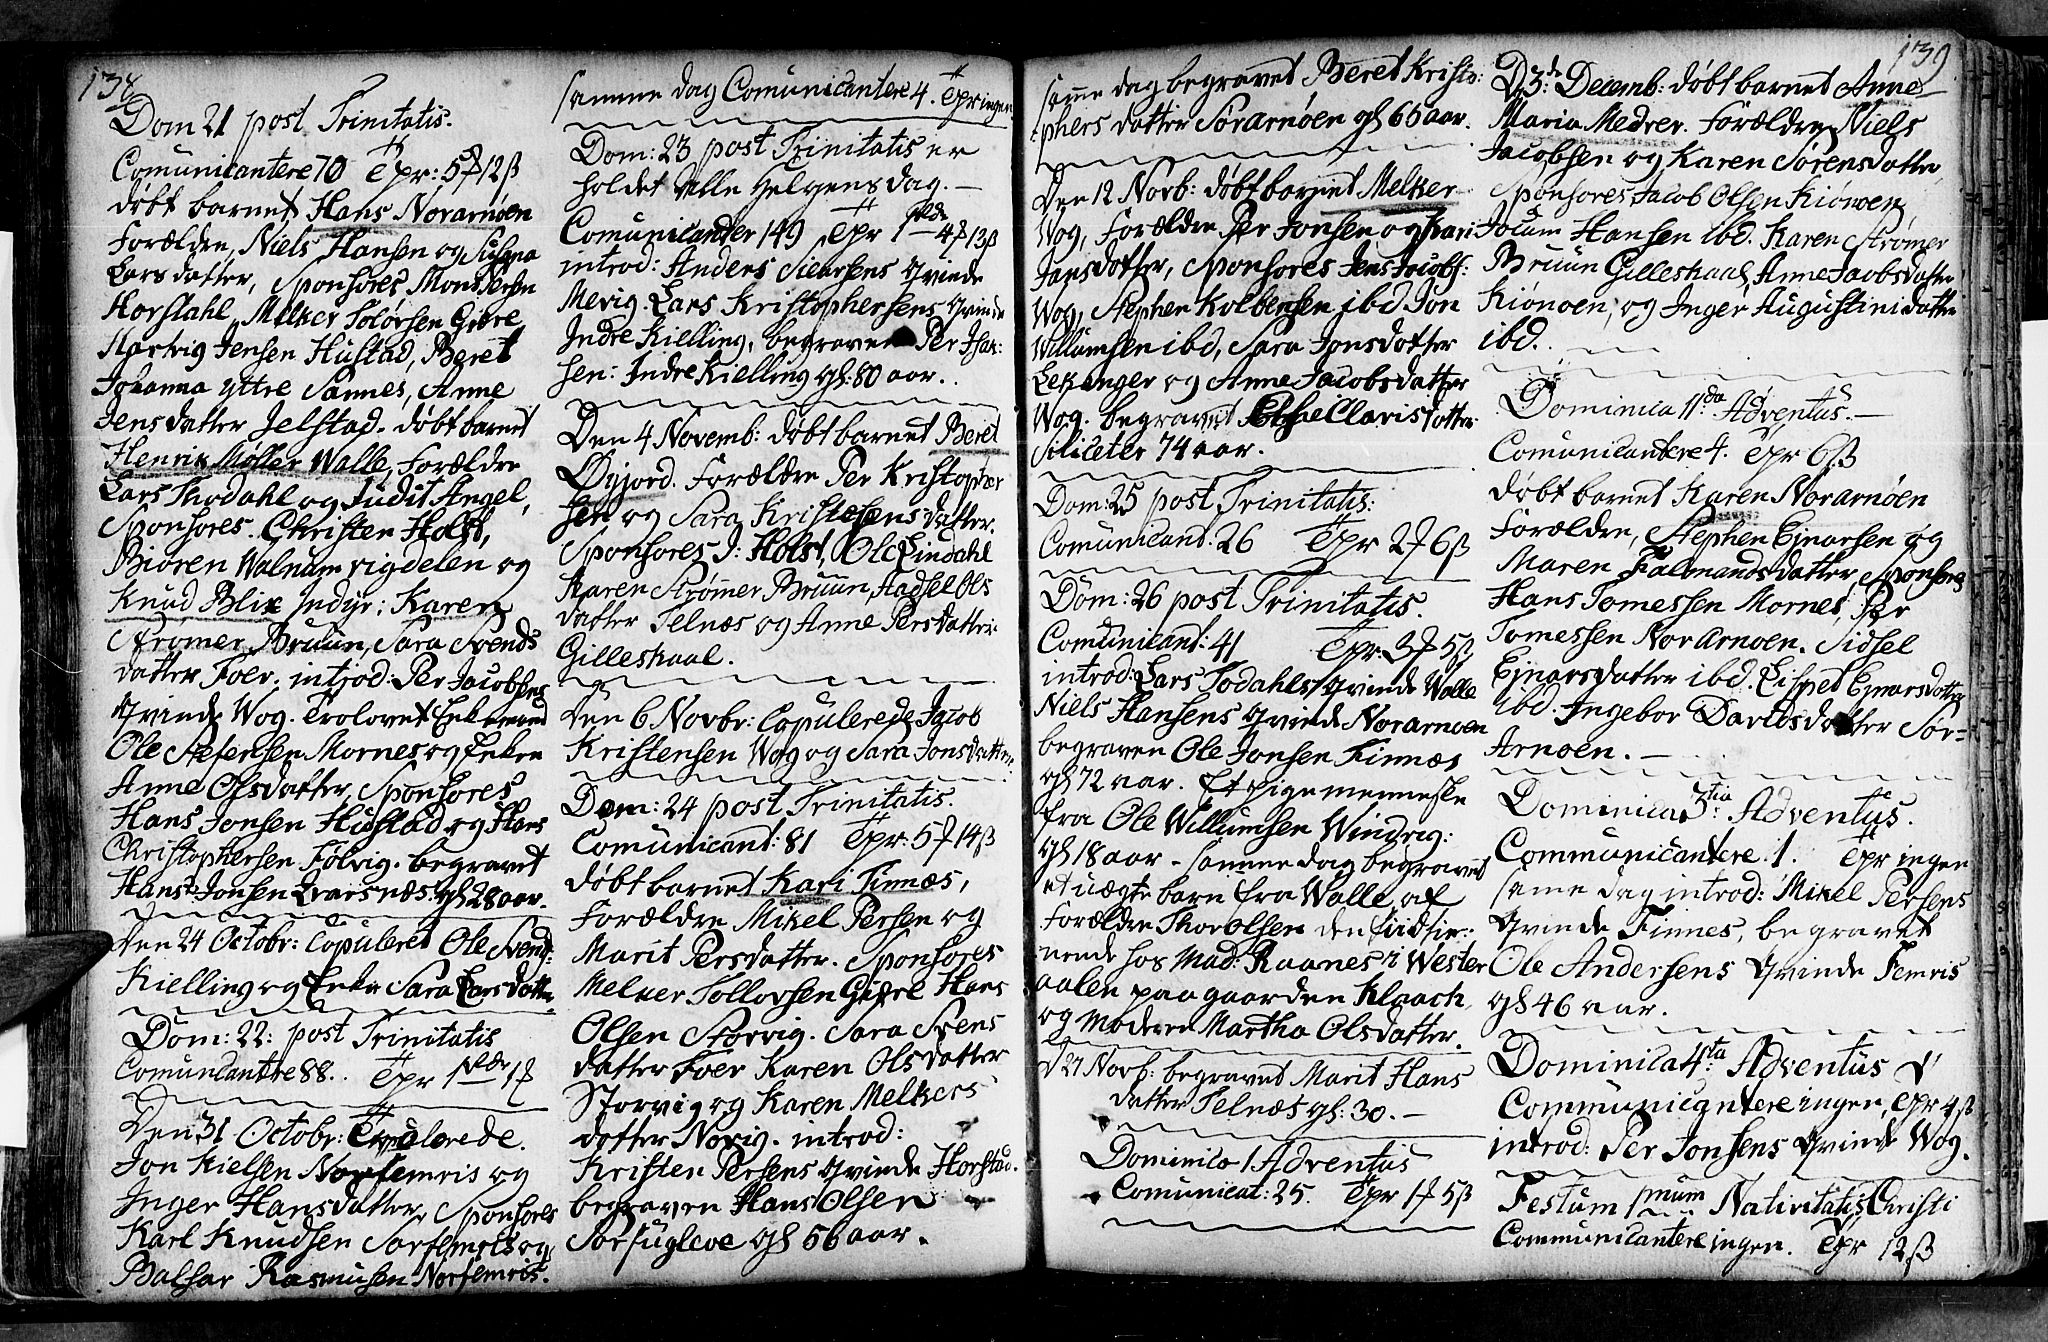 138
Dom 21 post Trinitatis.
Comunicantere 70 Tpr: 5 12ß
døbt barnet Hans Norarnøen
Forældre, Niels Hansen og Susana
Lars datter, Sponsores Mons Persen
Horstahl, Melker Tolorsen Giære
Hartvig Jensen Hustad, Beret
Johanna yttre Sannes, Anne
Jens datter Jelstad. døbt barnet
Henrik Møller Walle, Forældre
Lars Thodahl og Judit Angel,
Sponsores. Christen Holst,
Bioren Walnum rigdelen og
Knud Blix Indyr: Karen
Strømer Bruun, Sara Svends
datter Foer. introd: Per Jacobsens
Qvinde Wog. Trolovet Enkemand
Ole Stefensen Mornes og Enken
Anne Olsdatter, Sponsores
Hans Jonsen Hustad og Hans
Christophersen Følvig. begravet
Hans Jonsen Evarsnæs. gl 28 aar.
Den 24 Octobr: Copuleret Ole Svend:
Kielling og Enke Sara Larsdatter
Dom: 22: post Trinitatis
Comunicantre 88. Tpr 1 rdr 1
Den 31 Octobr: Copulerede
Jon Nielsen Norfemris og
Inger Hansdatter, Sponsores
Karl Knudsen Sorfemris og
Balsar Rasmusen Norfemris.
samme dag Comunicantere 4. Tpr ingen
Dom: 23 post Trinitatis er
holdet Alle Helgens dag. –
Comunicander 149 Tpr 1 rdr 4 13ß
introd: Anders Sivarsens Qvinde
Mevig Lars Kristophersens Qvinde
Indre Kielling, begraven Per Isak:
sen: Indre Kielling gl: 80 aar.
Den 4 Novemb: døbt barnet Beret
Øyjord. Forældre Per Kristopher
sen og Sara Kristensens datter.
Sponsores J: Holst, Ole Eindahl
Karen Strømmer Bruun, Aadsel Ols
datter Telnæs og Anne Persdatter
Gilleskaal.
Den 6 Novbr: Copulerede Jacob
Kristensen Wog og Sara Jonsdatter
Dom: 24 post Trinitatis.
Comunicant: 81 Tpr: 5 14ß
døbt barnet Kari Finnæs,
Forældre Mikel Persen og
Marit Persdatter. Sponsores
Melker Tollovsen Giære Hans
Olsen Storvig. Sara Svens
datter Foer Karen Olsdatter
Storvig og Karen Melkers
datter Norvig. introd:
Kristen Persens Qvinde Horstad.
begraven Hans Olsen
Sorfugleve gl 56 aar.
139
samme dag begravet Beret Kristo:
phers datter Sørarnøen gl 66 aar.
Den 12 Novb: døbt barnet Melker
Wog, Forældre Per Jonsen og Kari
Jansdatter, Sponsores Jens Jacobs:
Wog, Stephen Kolbensen ibd Jon
Willumsen ibd, Sara Jonsdatter
Lekanger og Anne Jacobsdatter
Wog. begravet Clavisdatter
74 aar.
Dom: 25 post Trinitatis:
Comunicand. 26 Tpr 2 6ß
Dom: 26 post Trinitatis.
Comunicant: 41 Tpr: 3 5ß
introd: Lars Todahls Qvinde Walle
Niels Hansens Qvinde Norarnoen
begraven Ole Jonsen Finnæs
gl 72 aar. Et pigemenneske
fra Ole Willumsen Windvig:
gl 18 aar – samme dag begravet
et uægte barn fra Walle af
Forældre Thor Olsen den tiid tie:
nende hos Mad: Raanes i Wester
aalen paa gaarden Klaach
og Moderen Martha Olsdatter.
d 27 Novb: begravet Marit Hans
datter Telnæs gl: 30. –
Dominica 1 Adventus
Comunicat: 25. Tpr 1 5ß
D 3: Decemb: døbt barnet Anne
Maria Medrer. Forældre Niels
Jacobsen og Karen Sørensdatter,
Sponsores Jacob Olsen Kiønoen,
Jocum Hansen ibd. Karen Strømer
Bruun Gilleskaal, Anne Jacobsdatter
Kiønoen, og Inger Augustini datter
ibd.
Dominica 11da Adventus. –
Comunicantere 4. Tpr 6ß
døbt barnet Karen Norarnøen
Forældre, Stephen Ejnarsen og
Maren Falmandsdatter, Sponsores
Hans Tomessen Mornes, Per
Tomessen Norarnoen. Sidsel
Ejnarsdatter ibd. Elspet Ejnarsdatter
ibd. Ingebor Davidsdatter Sør-
Arnoen. –
Dominica 3tia: Adventus.
Communicantere 1. Tpr ingen
same dag introd: Mikel Persens
Qvinde Finnes, begravet
Ole Andersens Qvinde Femris
gl 46 aar.
Dominica 4ta: Adventus
Communicantere ingen, Tpr 4ß
introd: Per Jonsens Qvinde Wog.
Festum 1mum Nativitatis Christi
Communicantere ingen. Tpr 12ß